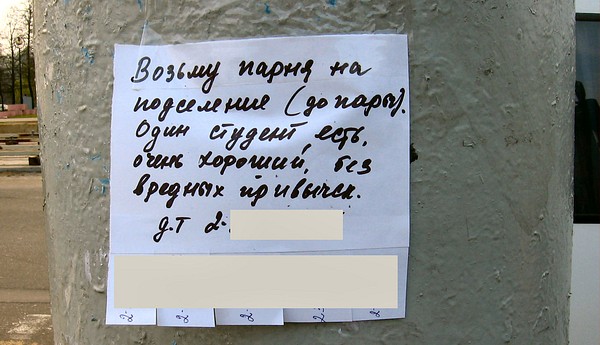 Возьму парня на
подселение (до пары).
Один студент есть,
очень хороший, без
вредных привычек.
д.т 2-
2-
2-
2-
2-
2-